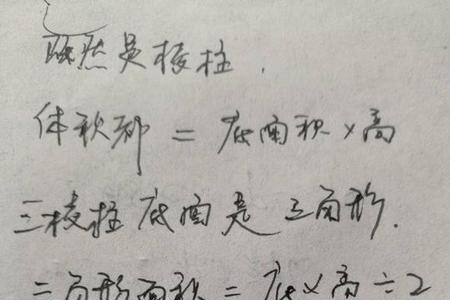 既然是棱柱.
体积都 = 底面积×高
三棱柱底面是三角形.
三角形面积 = 底×高÷2